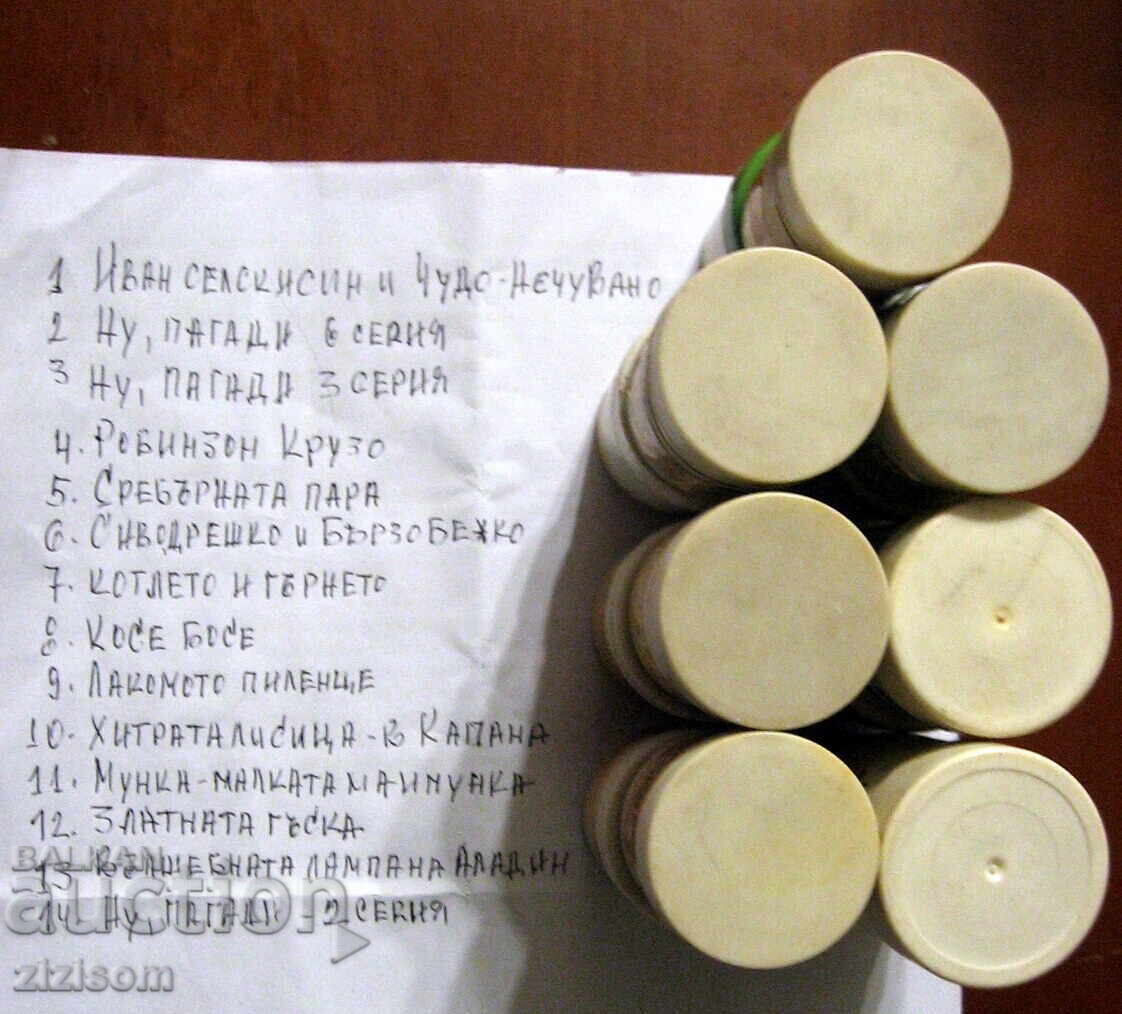 1 ИВАН СЕЛСКИ СИН И ЧУДО-НЕЧУВАНО
2 НУ, ПАГАДИ 6 СЕРИЯ
3 НУ, ПАГАДИ 3 СЕРИЯ
4. РОБИНЗОН КРУЗО
5. СРЕБЪРНАТА ПАРА
6. СИВОДРЕШКО И БЪРЗОБЕЖКО
7. КОТЛЕТО И ГЪРНЕТО
8. КОСЕ БОСЕ
9. ЛАКОМОТО ПИЛЕНЦЕ
10. ХИТРАТА ЛИСИЦА-В КАПАНА
11. МУНКА-МАЛКАТА МАИМУНКА
12. ЗЛАТНАТА ГЪСКА
13 ВЪЛШЕБНАТА ЛАМПА НА АЛАДИН
14. НУ, ПАГАДИ - 2 СЕРИЯ
BALKAN
auction
zizisom